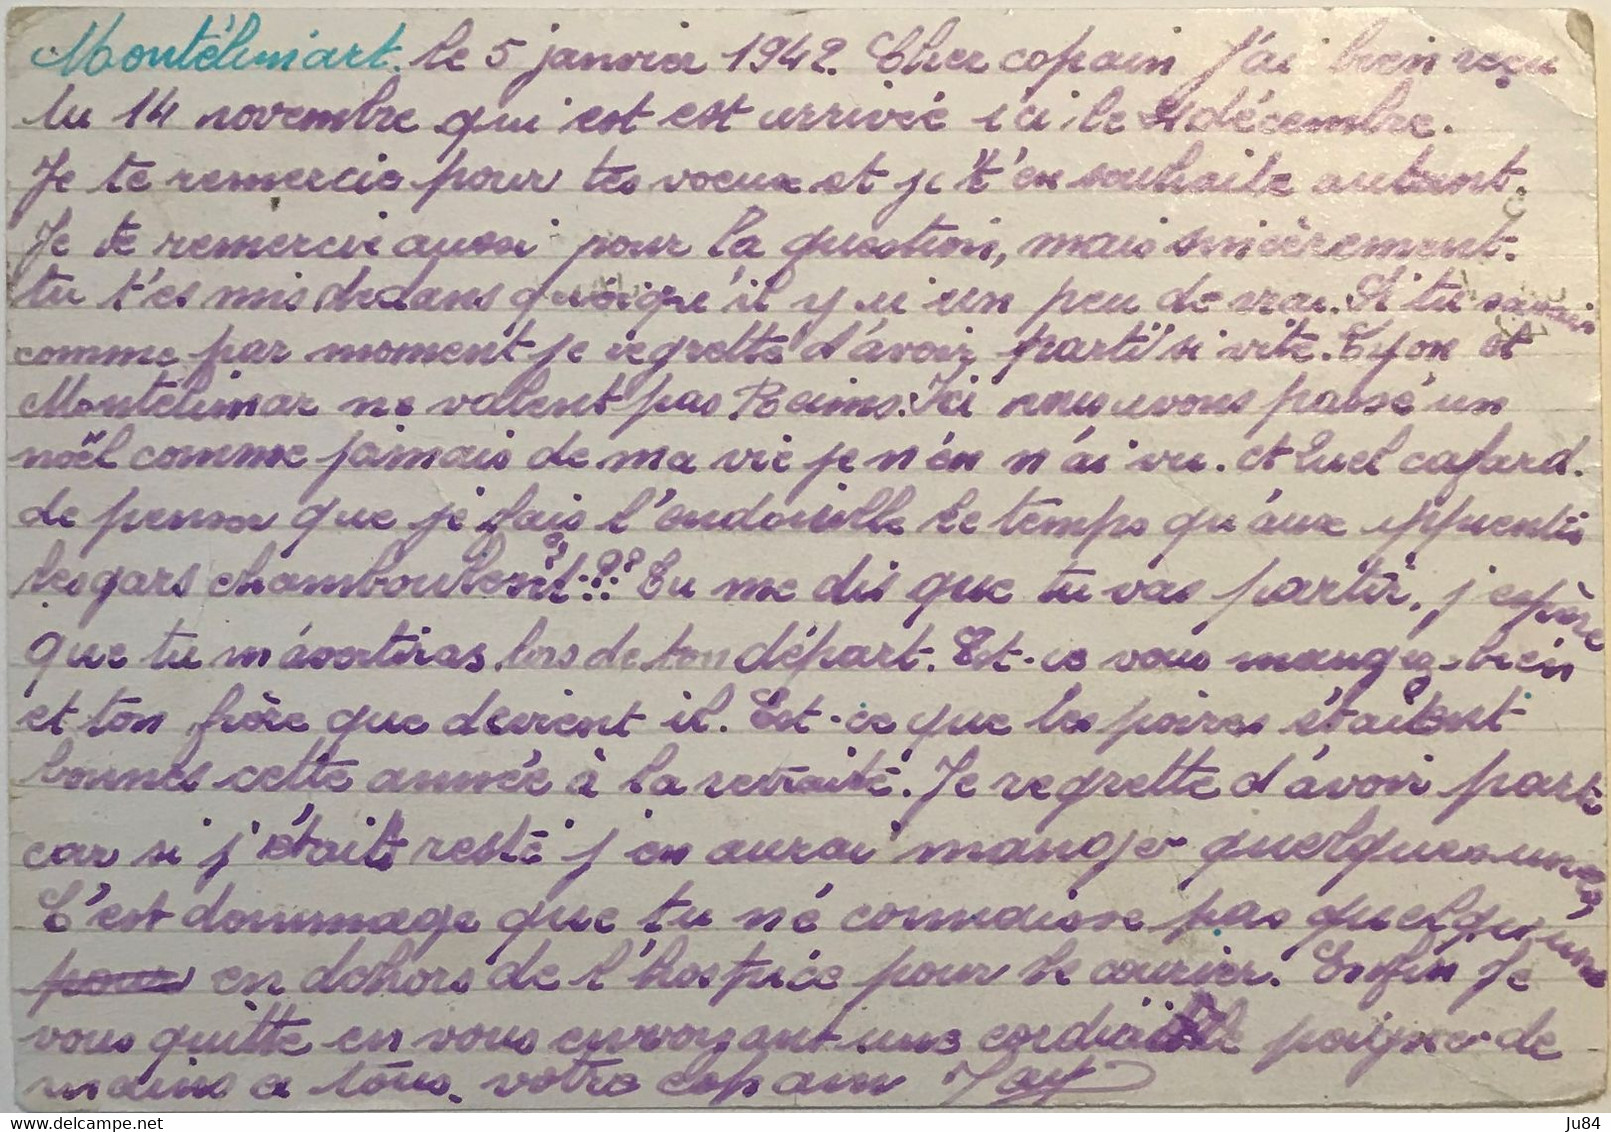 Montélimart. le 5 janvier 1942. Cher copain j'ai bien reçu
tu 14 novembre qui est est arrivée ici le 21 décembre.
Je te remercie pour tes voeux et je t'en souhaite autant.
Je te remercie aussi pour la question, mais sincèrement.
tu t'es mis dedans quoiqu'il y ai un peu de vrai. Si tu savais
comme par moment je regrette d'avoir parti si vite. Lyon et
Montélimar ne valent pas Reims. Ici nous avons passé un
noël comme jamais de ma vie je n'en n'ai vu. et quel cafard.
de penser que je fais l'andouille le temps qu'aux apprentis
les gars chamboulent!??? Tu me dis que tu vas partir, j'espère
que tu m'avertiras lors de ton départ. Est-ce vous mangez bien
et ton frère que devient il. Est-ce que les poires étaient
bonnes cette année à la retraite. Je regrette d'avoir parti
car si j'étais resté j'en aurai manger quelques unes,
C'est dommage que tu ne connaisse pas quelqu'une
pour en dehors de l'hospice pour le courier. Enfin Je
vous quitte en vous envoyant une cordiaille poignée de
mains a tous. votre copain
Ju84
delcampe.net